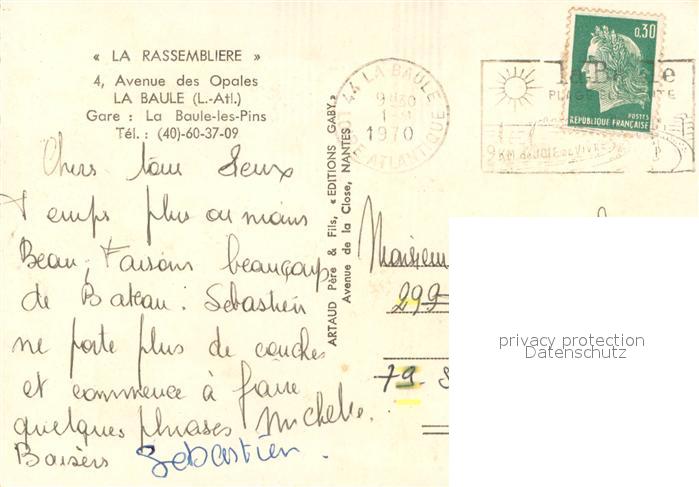 « LA RASSEMBLIERE »
4, Avenue des Opales
LA BAULE (L.-Atl.)
Gare : La Baule-les-Pins
Tél. : (40)-60-37-09
Chers tous deux
Temps plus ou moins
Beau, Faisons beaucoup
de Bateau. Sébastien
ne porte plus de couches
et commence à faire
quelques phrases Michelle.
Baisers Sebastien.
ARTAUD Père & Fils, « EDITIONS GABY »
Avenue de la Close, NANTES
44 LA BAULE
9H30
1-9
1970
LOIRE ATLANTIQUE
la Baule
PLAGE
9 KM de JOIE de VIVRE
0,30
POSTES
REPUBLIQUE FRANÇAISE
299
79-S
privacy protection
Datenschutz